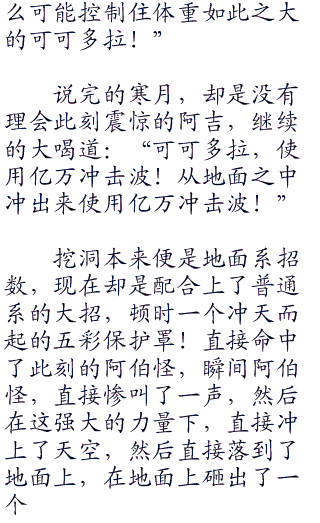 么可能控制住体重如此之大
的可可多拉！”
说完的寒月，却是没有
理会此刻震惊的阿吉，继续
的大喝道：“可可多拉，使
用亿万冲击波！从地面之中
冲出来使用亿万冲击波！”
挖洞本来便是地面系招
数，现在却是配合上了普通
系的大招，顿时一个冲天而
起的五彩保护罩！直接命中
了此刻的阿伯怪，瞬间阿伯
怪，直接惨叫了一声，然后
在这强大的力量下，直接冲
上了天空，然后直接落到了
地面上，在地面上砸出了一
个